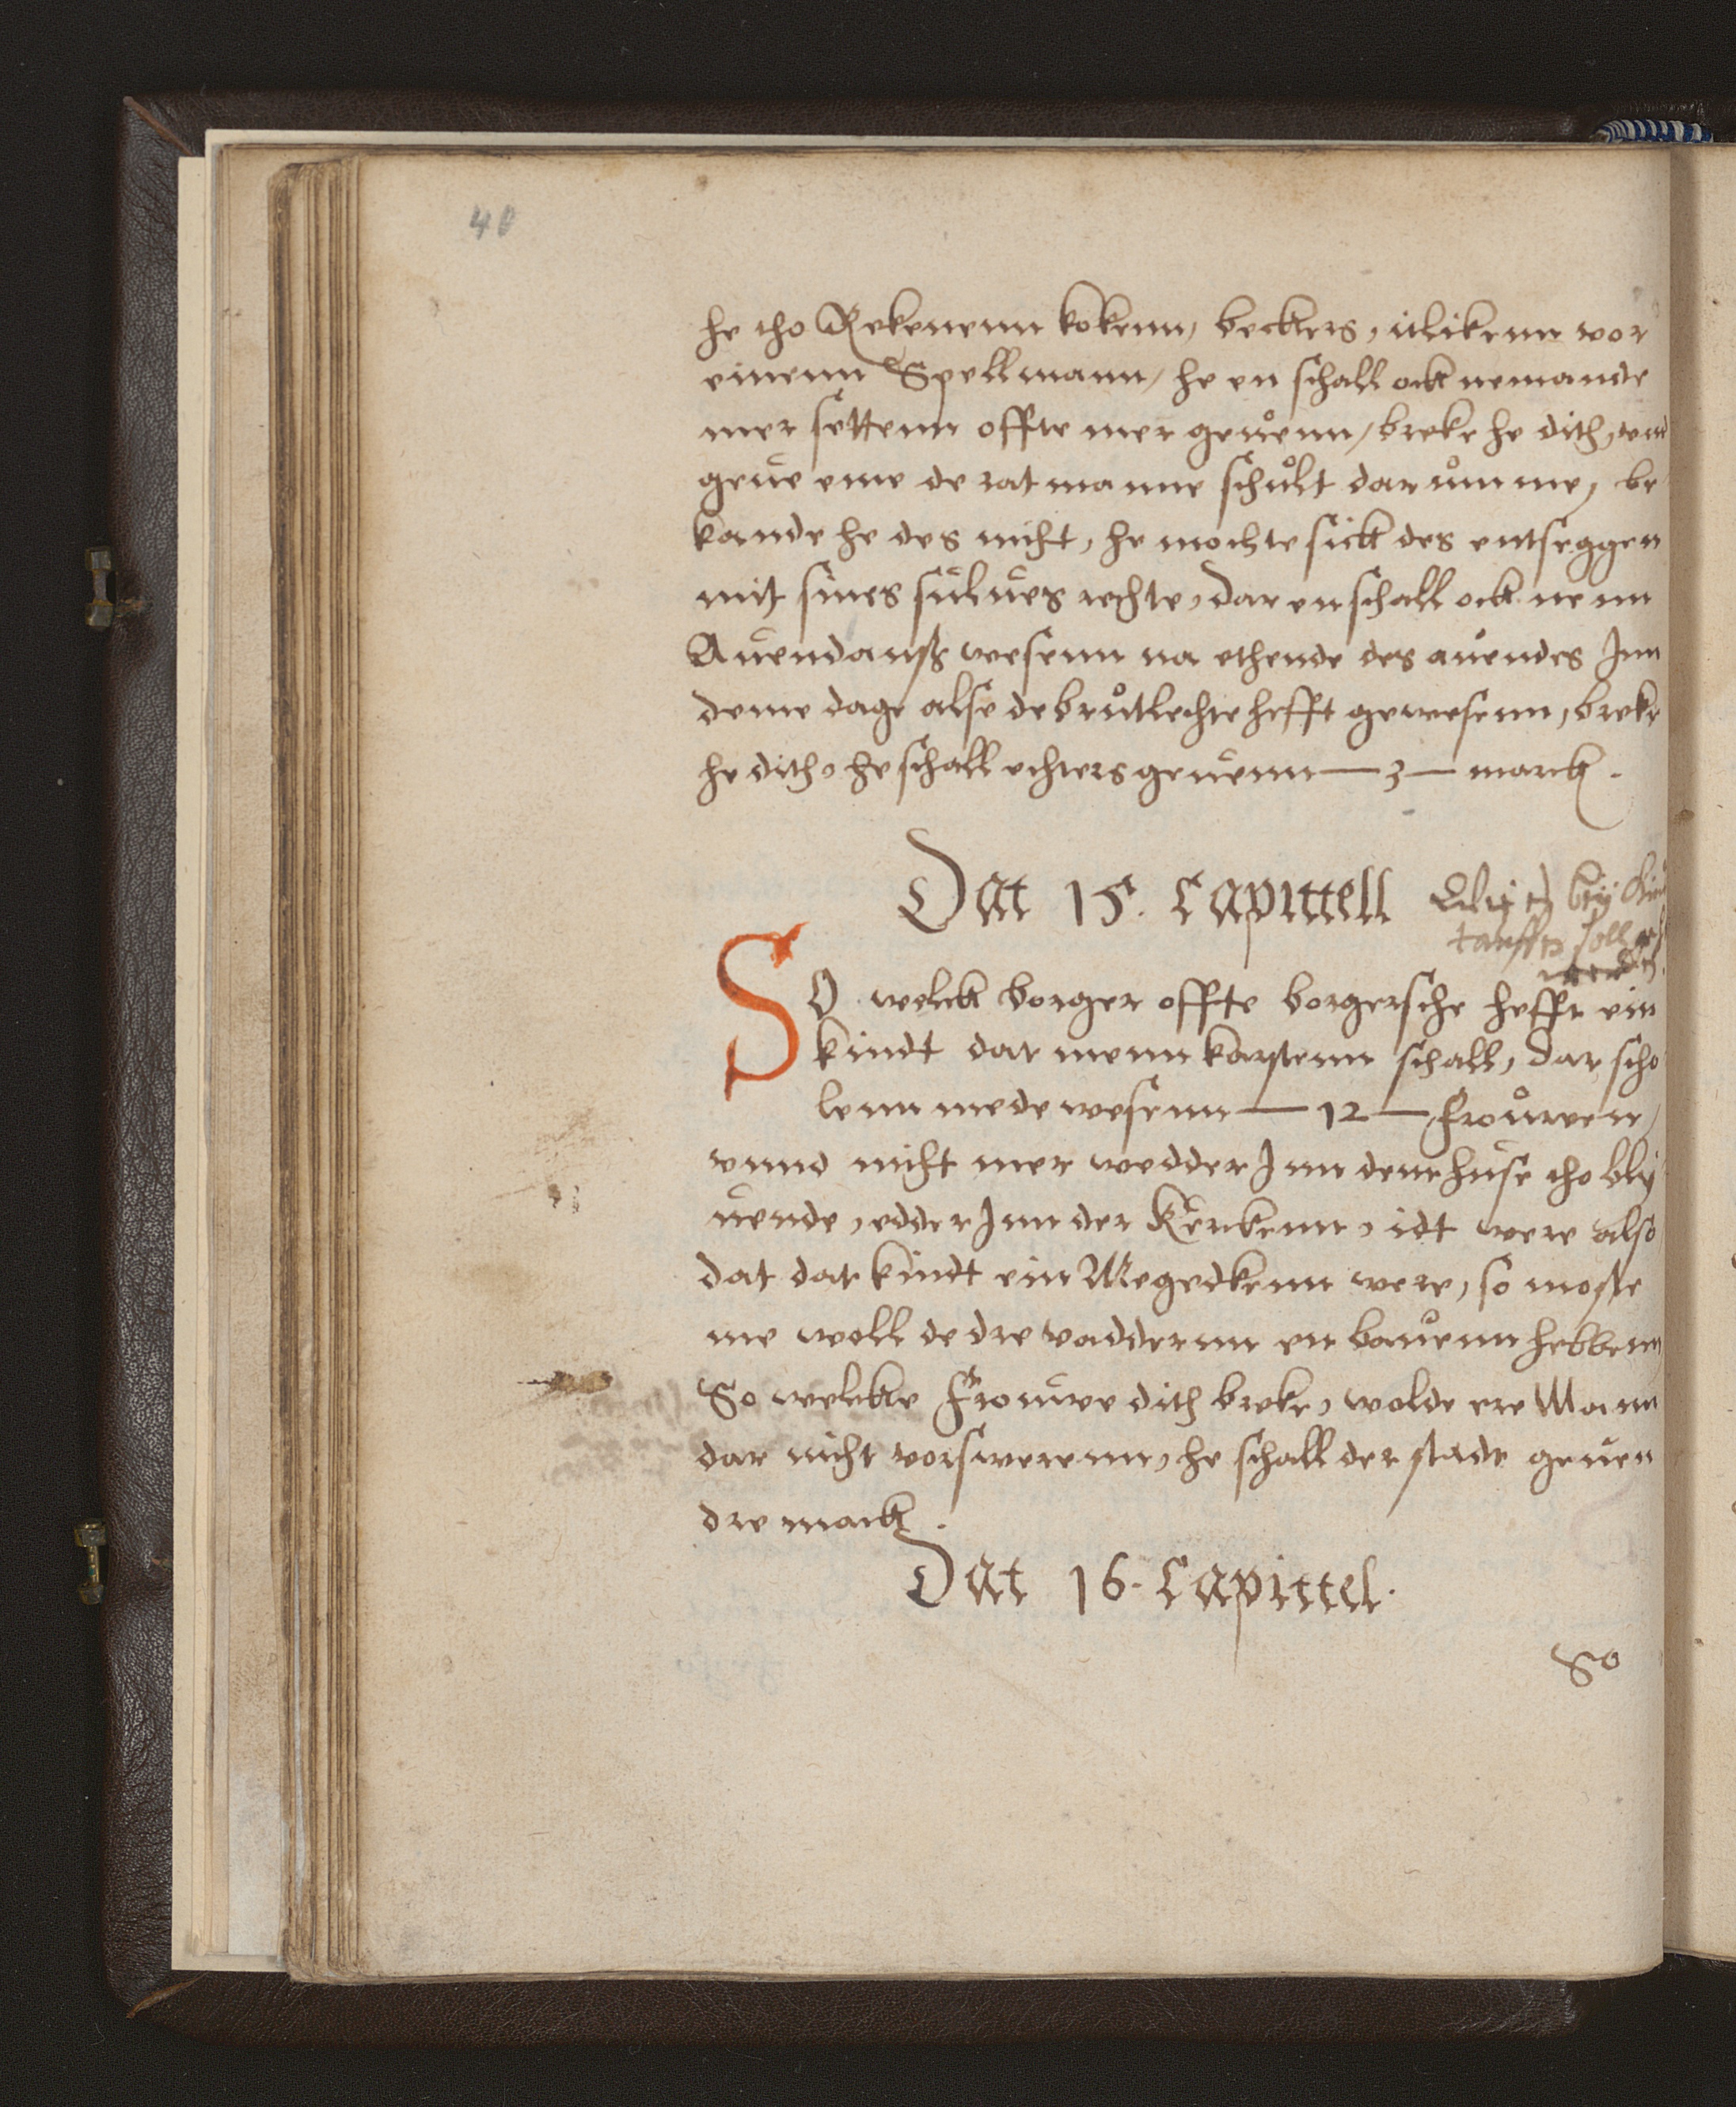 40
he tho Rekenenn kokenn, beckers, itlikenn vor
einenn Spellmann, he en schall ock nemande
mer settenn offte mer geuenn, breke he dith, vnd
geue eme de ratmanne schult darumme, be
kande he des nicht, he mochte sick des entseggen
mit sines sulues rechte, dar en schall ock nenn
Auendanß wesenn na ethende des auendes Inn
deme dage alse de brutlechte hefft gewesenn, breke
he dith, he schall echters geuenn — 3 — marck.
Dat 15. Capittell
tauffen soll
SO welck borger offte borgersche hefft ein
kindt dat menn karstenn schall, dar scho
lenn mede wesenn — 12 — frouwen,
vnnd nicht mer wedder Inn deme huse tho bly
uende, edder Inn der Kerkenn, idt were also
dat dat kindt ein Megedkenn were, so moste
me woll de dre vadderenn en bauenn hebbenn
So welcke Frouwe dith breke, wolde ere Mann
dar nicht vorswerenn, he schall der stadt geuen
dre marck.
Dat 16. Capittel.
So